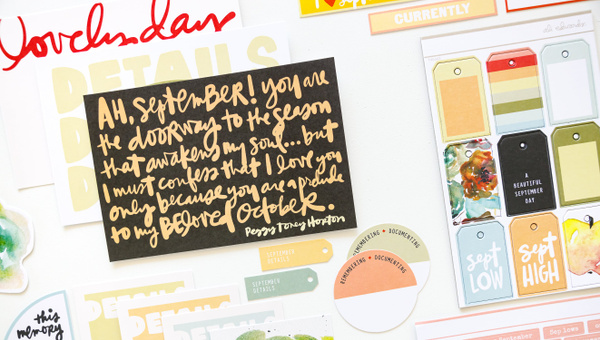 lovely days
I ♥
CURRENTLY
DETAILS
AH, SEPTEMBER! you are
the doorway to the season
that awakens my soul... but
I must confess that I love you
only because you are a prelude
to my BELOVED October.
Peggy Toney Horton
A
BEAUTIFUL
SEPTEMBER
DAY
sept
LOW
SEPT
HIGH
SEPTEMBER
DETAILS
SEPTEMBER
DETAILS
REMEMBERING • DOCUMENTING
REMEMBERING • DOCUMENTING
this
memory
DETAILS
DETAILS
DETAILS
September
Sept Lows